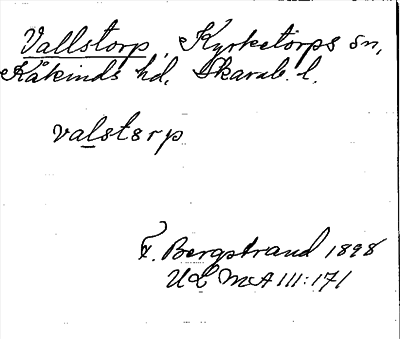 Vallstorp, Kyrketorps sn,
Kåkinds hd, Skarab. l.
valstərp
F. Bergstrand 1898
UL MA III:171